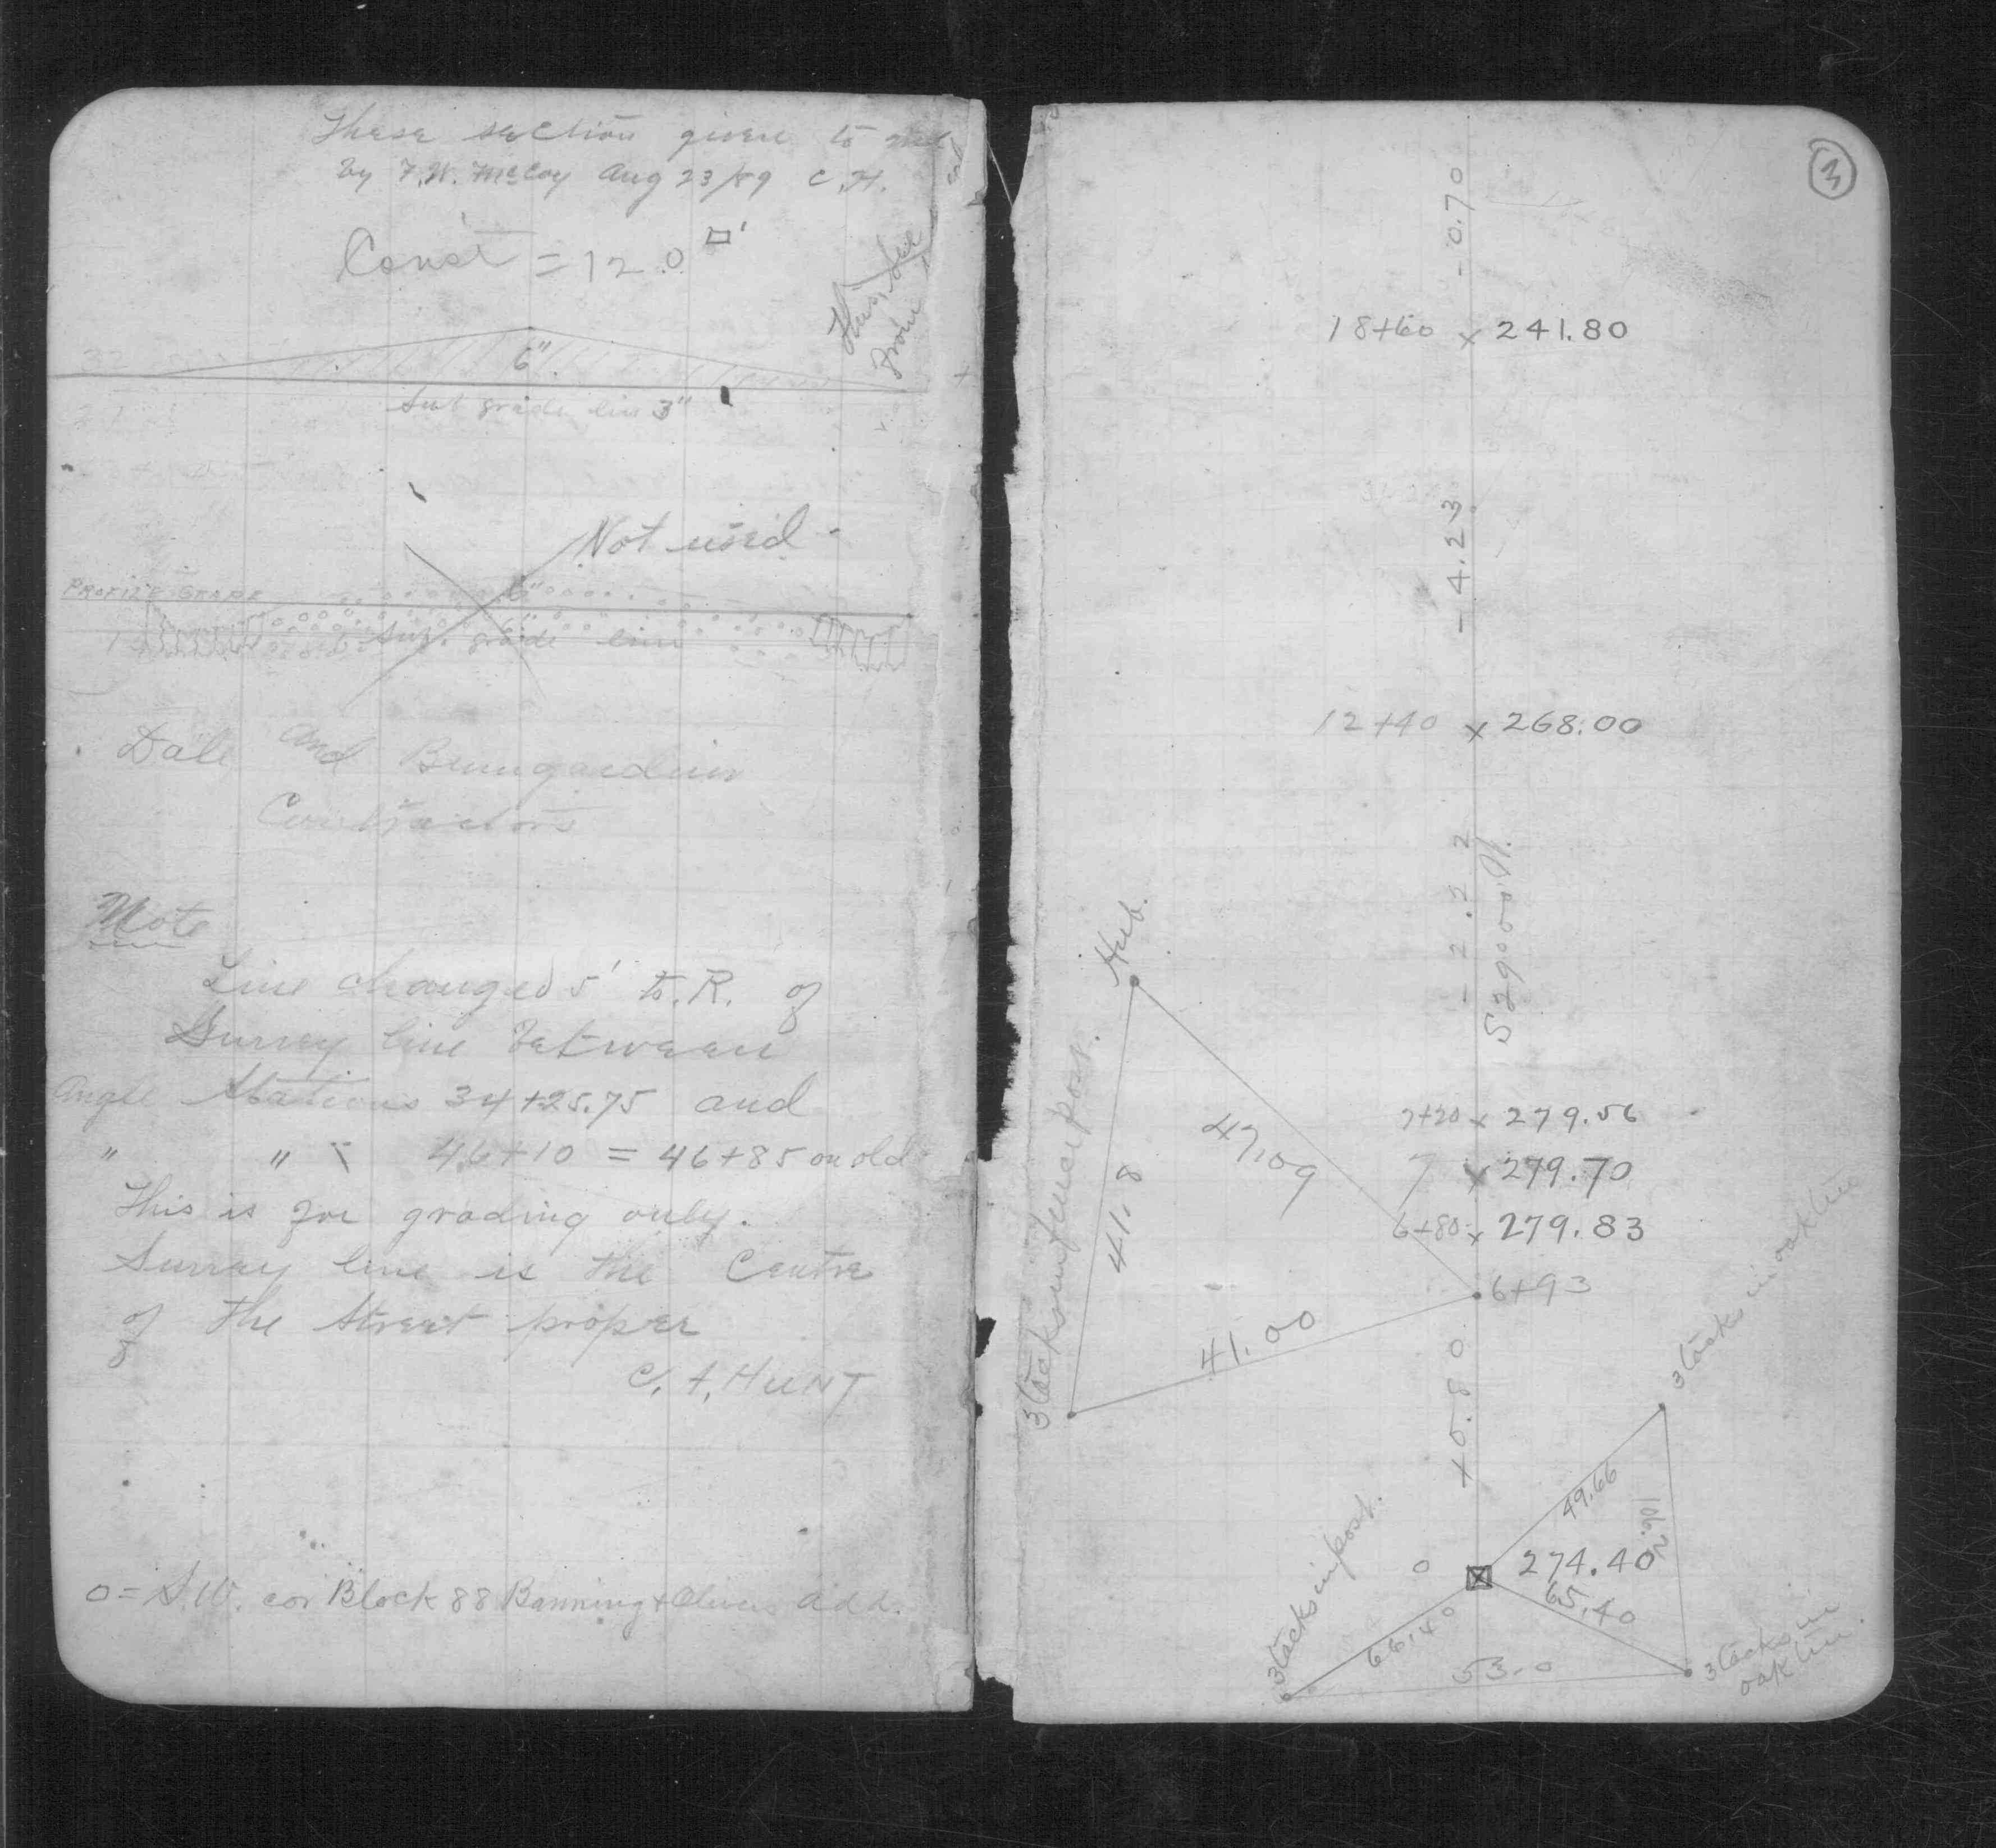 These section given to me
by F.W. McCoy Aug 23/89 C.H.
Const = 12.0 □'
This side
from
6"
Sub grade line 3"
Not used -
PROFILE GRADE
6"
6"
Sub. grade line
Dale and Bumgardner
Contractors
Note
Line changed 5' to R. of
Survey line between
Angle Stations 34+25.75 and
" " 46+10 = 46+85 on old
This is for grading only.
Survey line is the Centre
of the Street proper
C. A. HUNT
0 = S.W. cor Block 88 Banning & Olivers add.
3
- 0.70
18+60 x 241.80
- 4.23
12+40 x 268.00
- 2.22
S29°00 W.
Hub.
7+20 x 279.56
47.09
7 x 279.70
41.8
6+80 x 279.83
6+93
3 tacks in fence post.
41.00
+0.80
3 tacks in oak tree
49.66
106.2
3 tacks in post.
0 274.40
65.40
66.40
53.0
3 tacks in
oak tree.